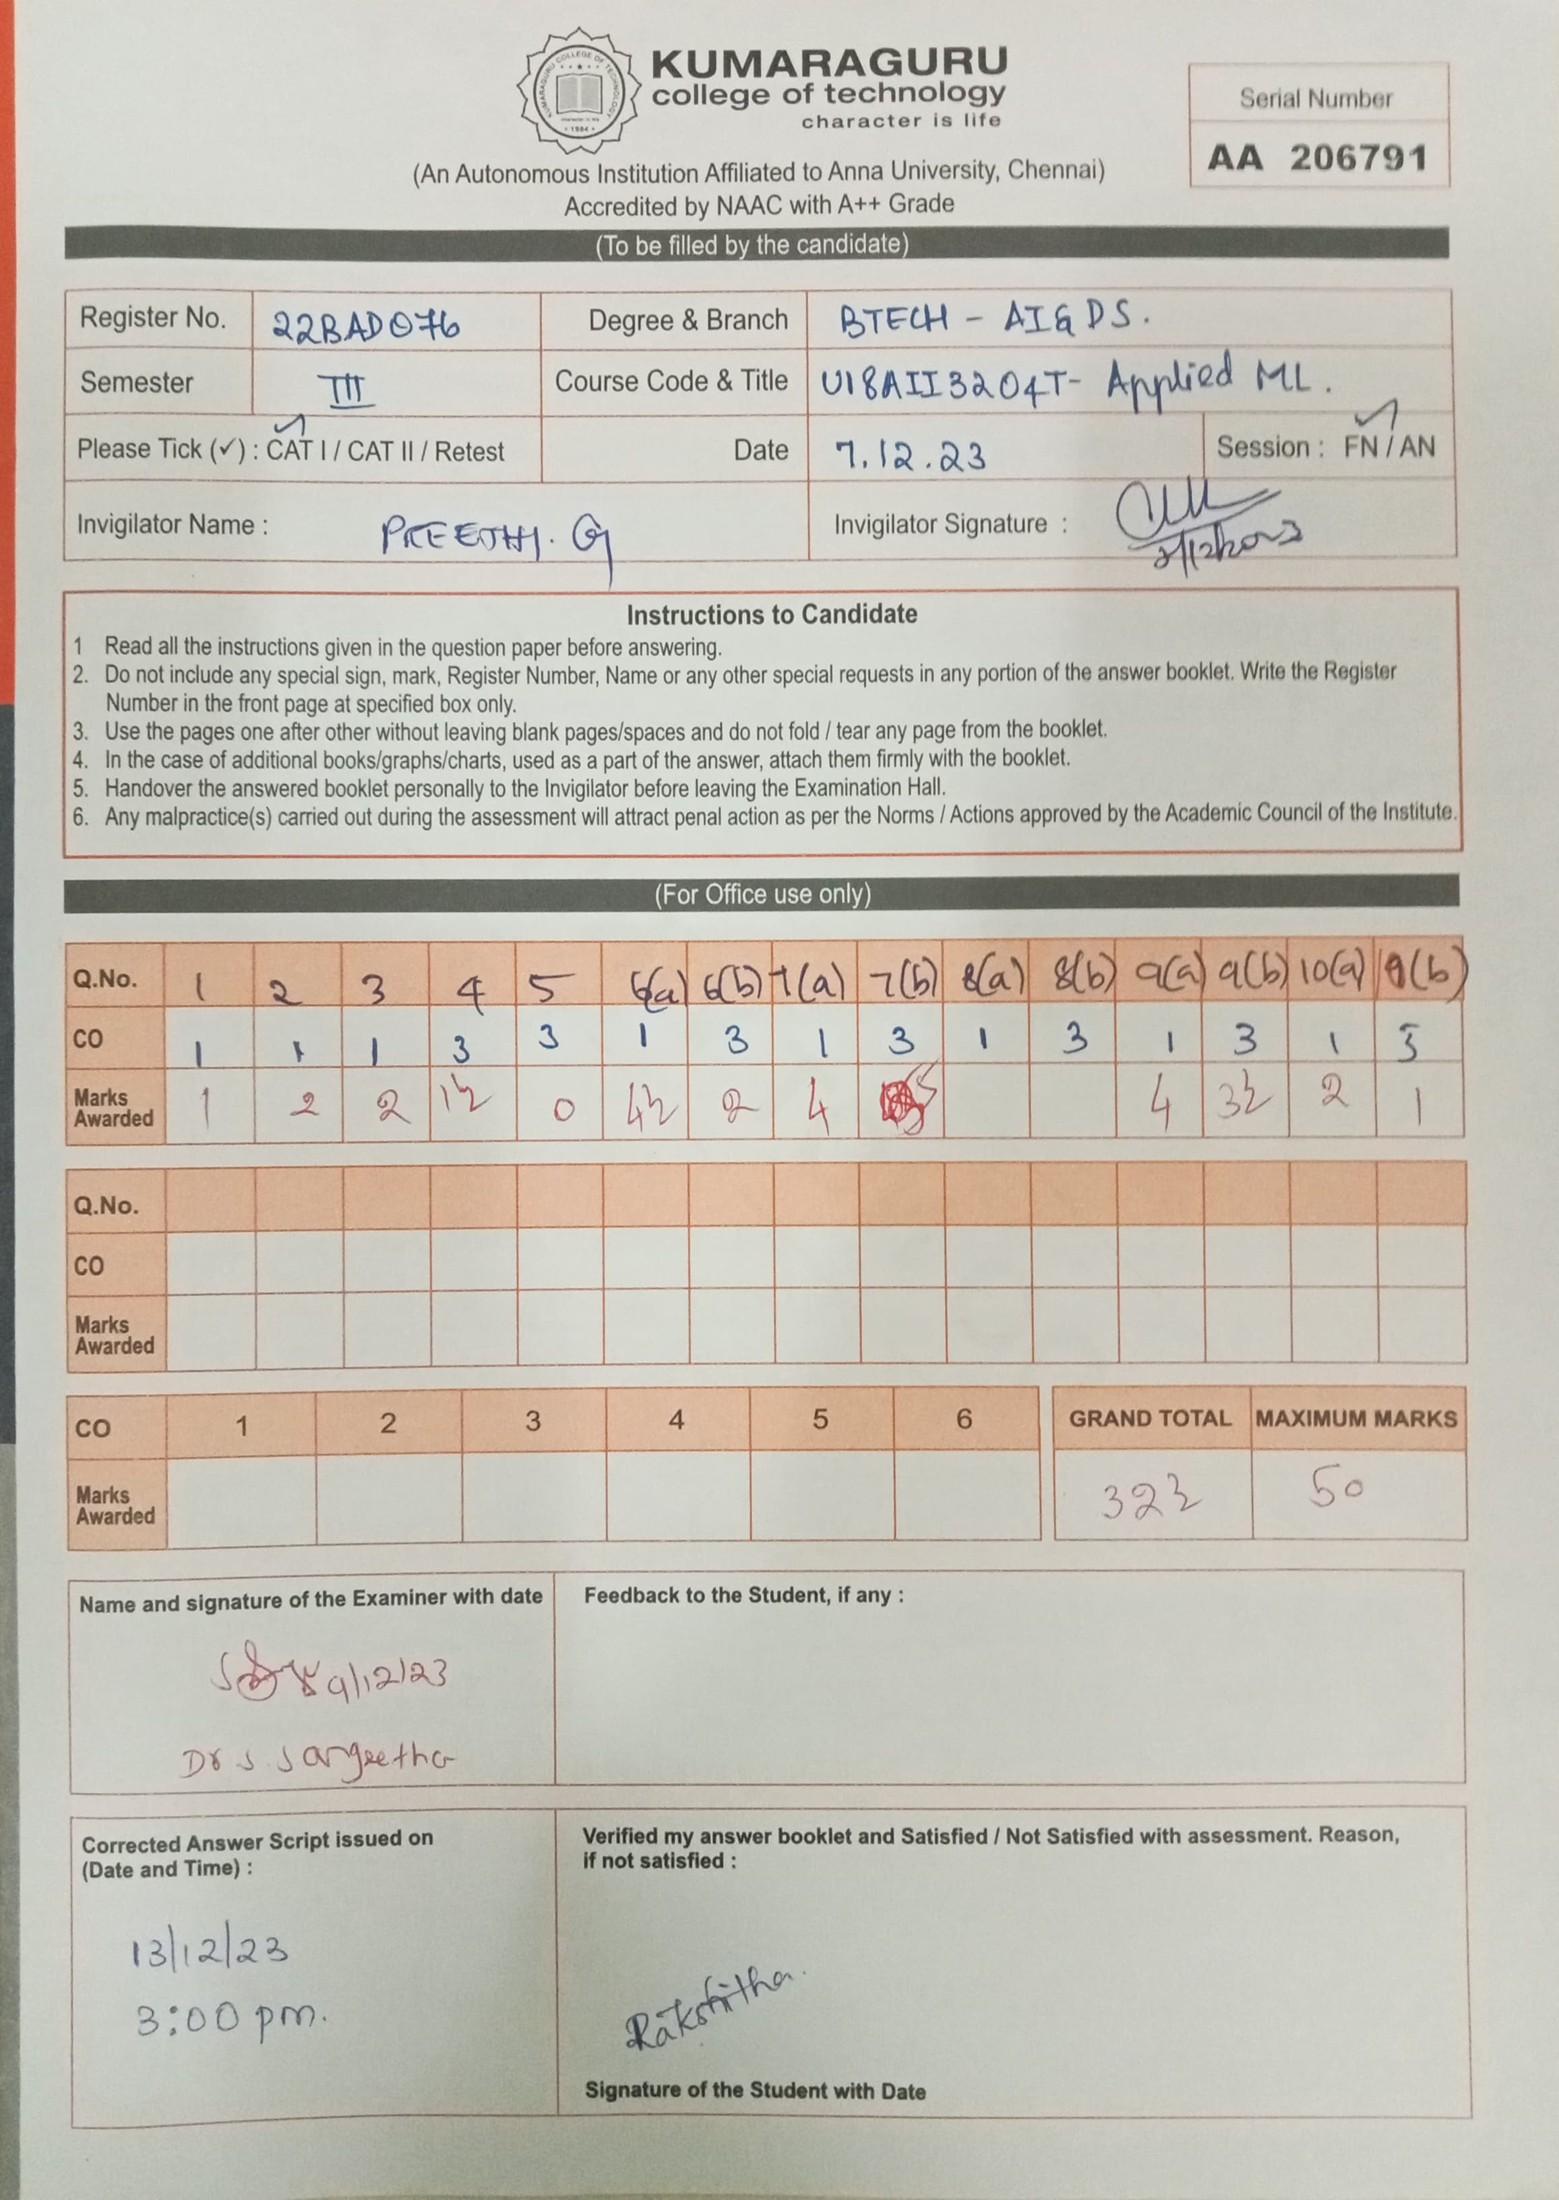 KUMARAGURU
college of technology
character is life
(An Autonomous Institution Affiliated to Anna University, Chennai)
Accredited by NAAC with A++ Grade
Serial Number
AA 206791
(To be filled by the candidate)
Register No. 22BAD076 Degree & Branch BTECH - AI&DS.
Semester III Course Code & Title U18AII3204T- Applied ML.
Please Tick (✓) : CAT I / CAT II / Retest Date 7.12.23 Session : FN / AN
Invigilator Name : PREETHI. G Invigilator Signature :
Instructions to Candidate
1 Read all the instructions given in the question paper before answering.
2. Do not include any special sign, mark, Register Number, Name or any other special requests in any portion of the answer booklet. Write the Register
Number in the front page at specified box only.
3. Use the pages one after other without leaving blank pages/spaces and do not fold / tear any page from the booklet.
4. In the case of additional books/graphs/charts, used as a part of the answer, attach them firmly with the booklet.
5. Handover the answered booklet personally to the Invigilator before leaving the Examination Hall.
6. Any malpractice(s) carried out during the assessment will attract penal action as per the Norms / Actions approved by the Academic Council of the Institute.
(For Office use only)
Q.No. 1 2 3 4 5 6(a) 6(b) 7(a) 7(b) 8(a) 8(b) 9(a) 9(b) 10(a) (b)
CO 1 1 1 3 3 1 3 1 3 1 3 1 3 1 3
Marks Awarded 1 2 2 1½ 0 4½ 2 4 5 4 3½ 2 1
Q.No.
CO
Marks Awarded
CO 1 2 3 4 5 6 GRAND TOTAL MAXIMUM MARKS
Marks Awarded 32½ 50
Name and signature of the Examiner with date
9/12/23
Dr S. Sangeetha
Feedback to the Student, if any :
Corrected Answer Script issued on
(Date and Time) :
13/12/23
3:00 pm.
Verified my answer booklet and Satisfied / Not Satisfied with assessment. Reason,
if not satisfied :
Rakshitha.
Signature of the Student with Date